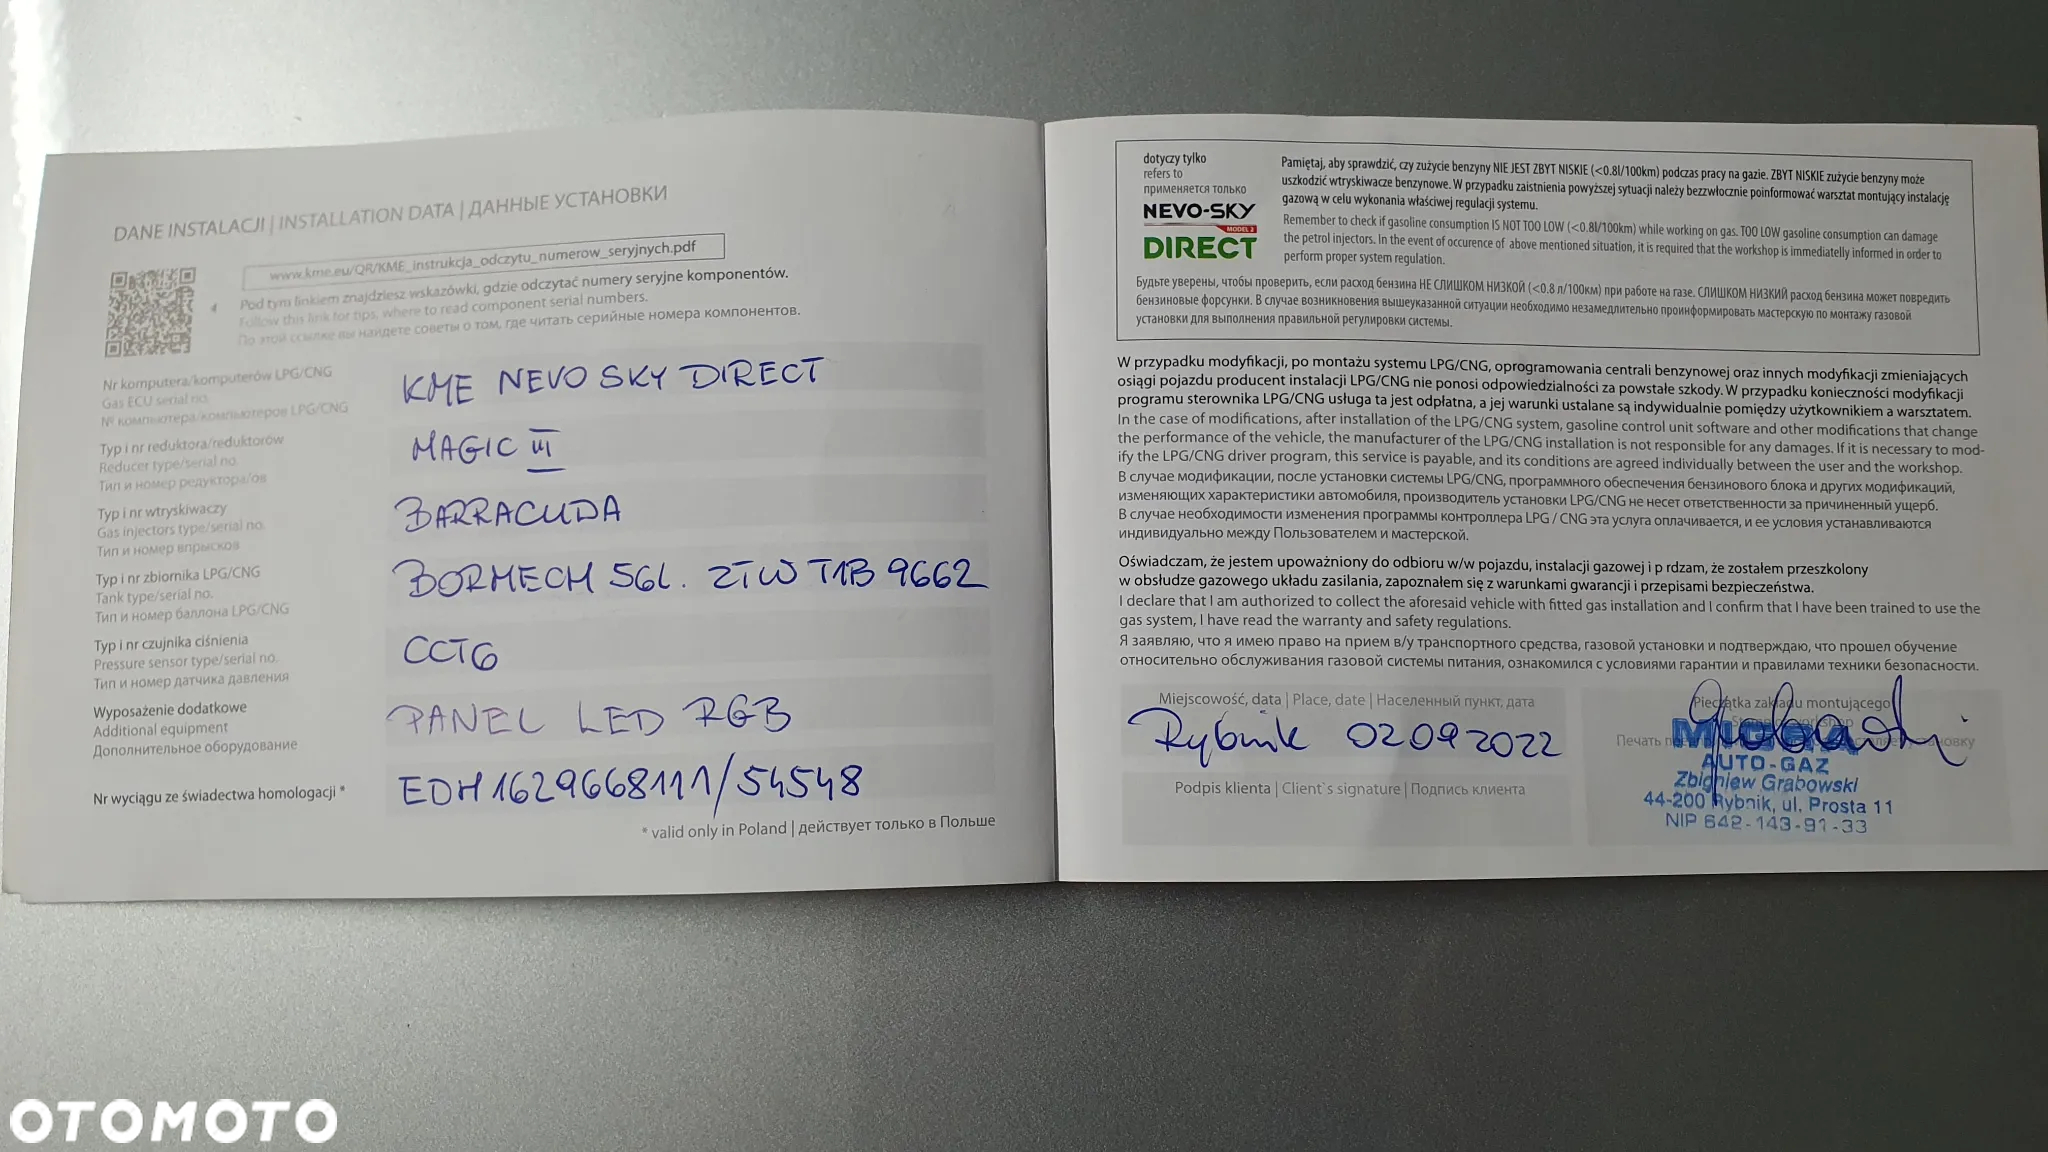 DANE INSTALACJI | INSTALLATION DATA | ДАННЫЕ УСТАНОВКИ
www.kme.eu/QR/KME_instrukcja_odczytu_numerow_seryjnych.pdf
Pod tym linkiem znajdziesz wskazówki, gdzie odczytać numery seryjne komponentów.
Follow this link for tips, where to read component serial numbers.
По этой ссылке вы найдете советы о том, где читать серийные номера компонентов.
Nr komputera/komputerów LPG/CNG
Gas ECU serial no.
№ компютера/компьютеров LPG/CNG
KME NEVO SKY DIRECT
Typ i nr reduktora/reduktorów
Reducer type/serial no
Тип и номер редуктора/ов
MAGIC III
Typ i nr wtryskiwaczy
Gas injectors type/serial no.
Тип и номер впрысков
BARRACUDA
Typ i nr zbiornika LPG/CNG
Tank type/serial no.
Тип и номер баллона LPG/CNG
BORMECH 56L. ZTW T1B 9662
Typ i nr czujnika ciśnienia
Pressure sensor type/serial no.
Тип и номер датчика давления
CCT6
Wyposażenie dodatkowe
Additional equipment
Дополнительное оборудование
PANEL LED RGB
Nr wyciągu ze świadectwa homologacji *
EDH1629668111/54548
* valid only in Poland | действует только в Польше
dotyczy tylko
refers to
применяется только
NEVO-SKY
MODEL 2
DIRECT
Pamiętaj, aby sprawdzić, czy zużycie benzyny NIE JEST ZBYT NISKIE (<0.8l/100km) podczas pracy na gazie. ZBYT NISKIE zużycie benzyny może
uszkodzić wtryskiwacze benzynowe. W przypadku zaistnienia powyższej sytuacji należy bezzwłocznie poinformować warsztat montujący instalację
gazową w celu wykonania właściwej regulacji systemu.
Remember to check if gasoline consumption IS NOT TOO LOW (<0.8l/100km) while working on gas. TOO LOW gasoline consumption can damage
the petrol injectors. In the event of occurence of above mentioned situation, it is required that the workshop is immediatelly informed in order to
perform proper system regulation.
Будьте уверены, чтобы проверить, если расход бензина НЕ СЛИШКОМ НИЗКОЙ (<0.8 л/100км) при работе на газе. СЛИШКОМ НИЗКИЙ расход бензина может повредить
бензиновые форсунки. В случае возникновения вышеуказанной ситуации необходимо незамедлительно проинформировать мастерскую по монтажу газовой
установки для выполнения правильной регулировки системы.
W przypadku modyfikacji, po montażu systemu LPG/CNG, oprogramowania centrali benzynowej oraz innych modyfikacji zmieniających
osiągi pojazdu producent instalacji LPG/CNG nie ponosi odpowiedzialności za powstałe szkody. W przypadku konieczności modyfikacji
programu sterownika LPG/CNG usługa ta jest odpłatna, a jej warunki ustalane są indywidualnie pomiędzy użytkownikiem a warsztatem.
In the case of modifications, after installation of the LPG/CNG system, gasoline control unit software and other modifications that change
the performance of the vehicle, the manufacturer of the LPG/CNG installation is not responsible for any damages. If it is necessary to mod-
ify the LPG/CNG driver program, this service is payable, and its conditions are agreed individually between the user and the workshop.
В случае модификации, после установки системы LPG/CNG, программного обеспечения бензинового блока и других модификаций,
изменяющих характеристики автомобиля, производитель установки LPG/CNG не несет ответственности за причиненный ущерб.
В случае необходимости изменения программы контроллера LPG / CNG эта услуга оплачивается, и ее условия устанавливаются
индивидуально между Пользователем и мастерской.
Oświadczam, że jestem upoważniony do odbioru w/w pojazdu, instalacji gazowej i p rdzam, że zostałem przeszkolony
w obsłudze gazowego układu zasilania, zapoznałem się z warunkami gwarancji i przepisami bezpieczeństwa.
I declare that I am authorized to collect the aforesaid vehicle with fitted gas installation and I confirm that I have been trained to use the
gas system, I have read the warranty and safety regulations.
Я заявляю, что я имею право на прием в/у транспортного средства, газовой установки и подтверждаю, что прошел обучение
относительно обслуживания газовой системы питания, ознакомился с условиями гарантии и правилами техники безопасности.
Miejscowość, data | Place, date | Населенный пункт, дата
Rybnik 02092022
Podpis klienta | Client`s signature | Подпись клиента
Pieczątka zakładu montującego
Печать
MIGRA
AUTO-GAZ
Zbigniew Grabowski
44-200 Rybnik, ul. Prosta 11
NIP 642-143-91-33
OTOMOTO